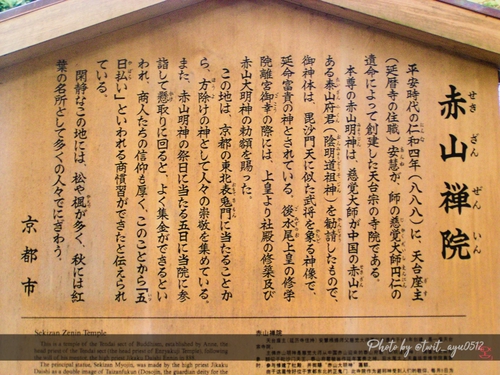 赤山禅院
せき ざん ぜん いん
平安時代の仁和四年（八八八）に、天台座主
（延暦寺の住職）安慧が、師の慈覚大師円仁の
遺命によって創建した天台宗の寺院である
本尊の赤山明神は、慈覚大師が中国の赤山に
ある泰山府君（陰明道祖神）を勧請したもので、
御神体は、毘沙門天に似た武将を象る神像で、
延命富貴の神とされている。後水尾上皇の修学
院離宮御幸の際には、上皇より社殿の修築及び
赤山大明神の勅額を賜った。
この地は、京都の東北表鬼門に当たることか
ら、方除けの神として人々の崇敬を集めている。
また、赤山明神の祭日に当たる五日に当院に参
詣して懸取りに回ると、よく集金ができるとい
われ、商人たちの信仰も厚く、このことから「五
日払い」といわれる商慣習ができたと伝えられ
ている。
閑静なこの地には、松や楓が多く、秋には紅
葉の名所として多くの人々でにぎわう。
京都市
Sekizan Zenin Temple
赤山禅院
Photo by @twit_ayu0512